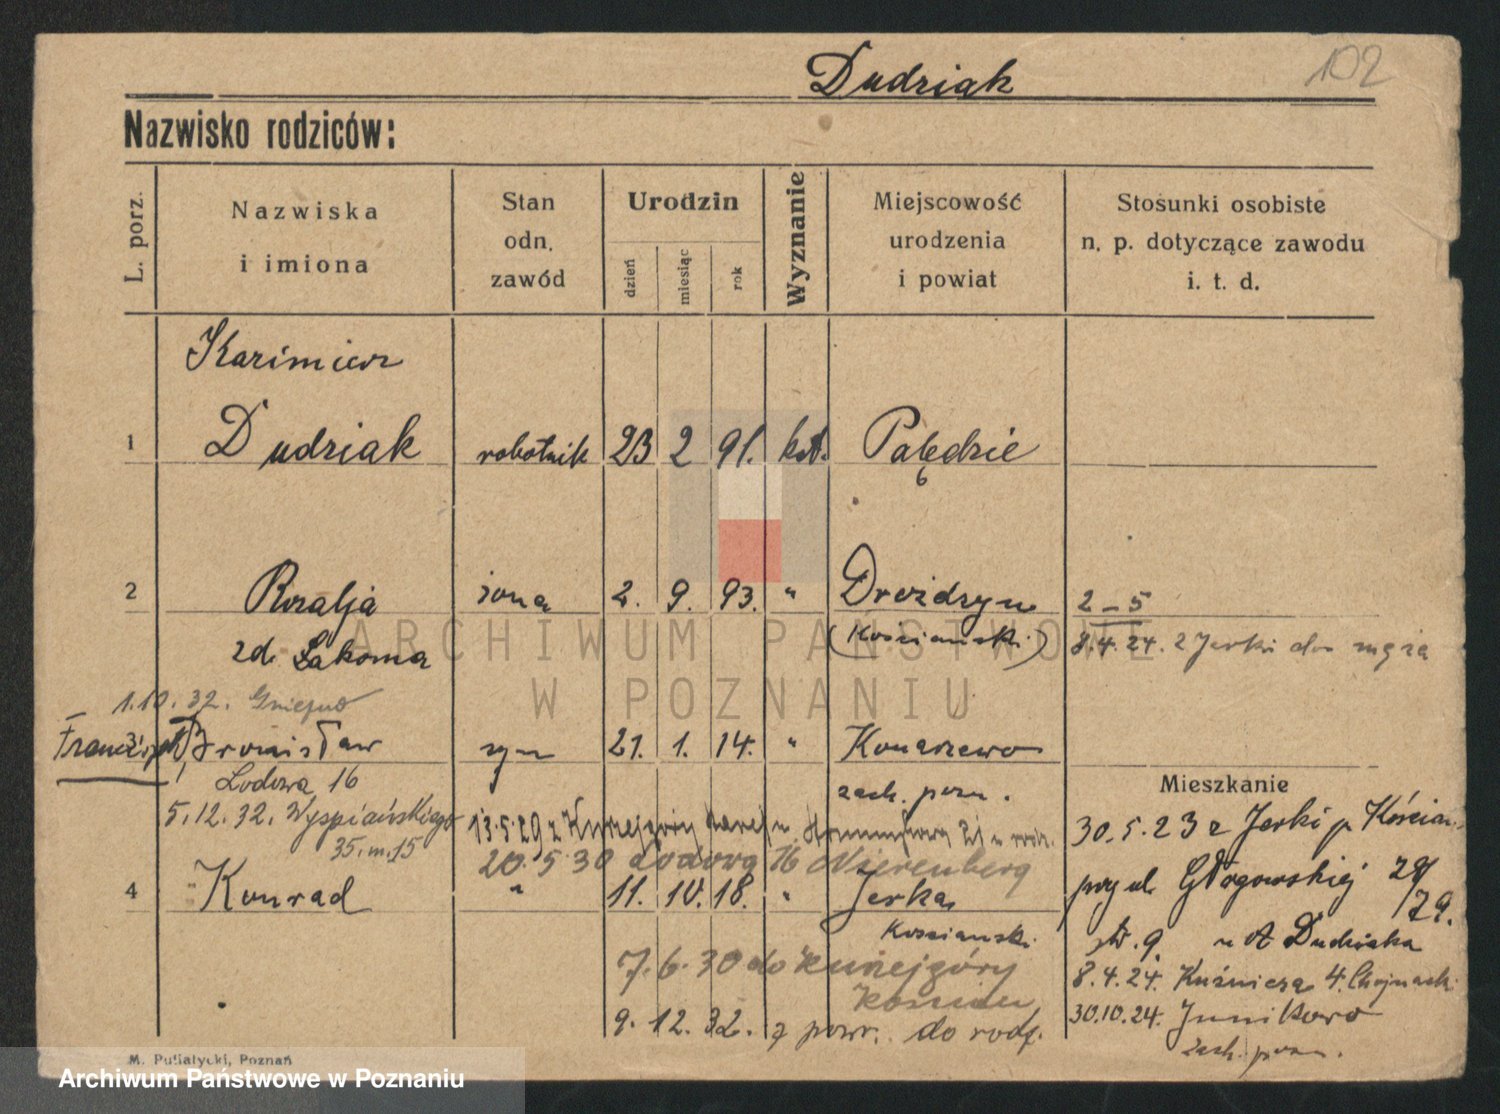 Dudziak
102
Nazwisko rodziców:
L. porz.
Nazwiska
i imiona
Stan
odn.
zawód
Urodzin
dzień
miesiąc
rok
Wyznanie
Miejscowość
urodzenia
i powiat
Stosunki osobiste
n. p. dotyczące zawodu
i. t. d.
Kazimierz
1 Dudziak robotnik 23 2 91. kat. Palędzie
2 Rozalja żona 2. 9. 93. " Drożdzyn 2-5
zd. Łakoma (Kościański) 8.4.24. z Jerki do męża
1.10.32. Gniezno
3 Bronisław syn 21. 1. 14. " Konarzewo
Lodowa 16 zach. pozn.
Mieszkanie
5.12.32. Wyspiańskiego 13.5.29 z
35. m. 15
30.5.23 z Jerki p. Kościan
20.5.30 Lodowa 16 Nierenberg
4 Konrad " 11. 10. 18. " Jerka,
Kościański
przy ul. Głogowskiej 28/29.
u A Dudziaka
7.6.30 do Kunejgóry
Kościan
8.4.24. Kuźnicza 4.
9.12.32. z powr. do rodz.
30.10.24. Junikowo
zach. pozn.
M. Putiatycki, Poznań
ARCHIWUM PAŃSTWOWE
W POZNANIU
Archiwum Państwowe w Poznaniu